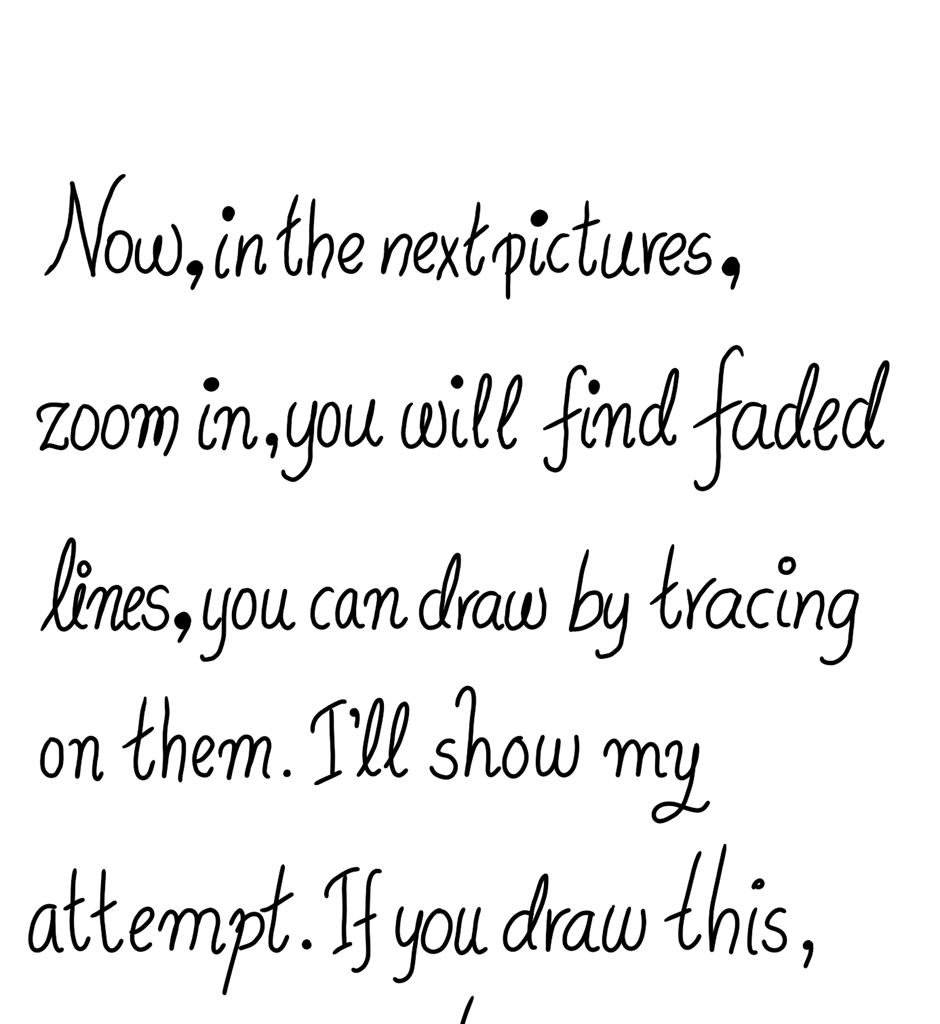 Now, in the next pictures,
zoom in, you will find faded
lines, you can draw by tracing
on them. I'll show my
attempt. If you draw this,